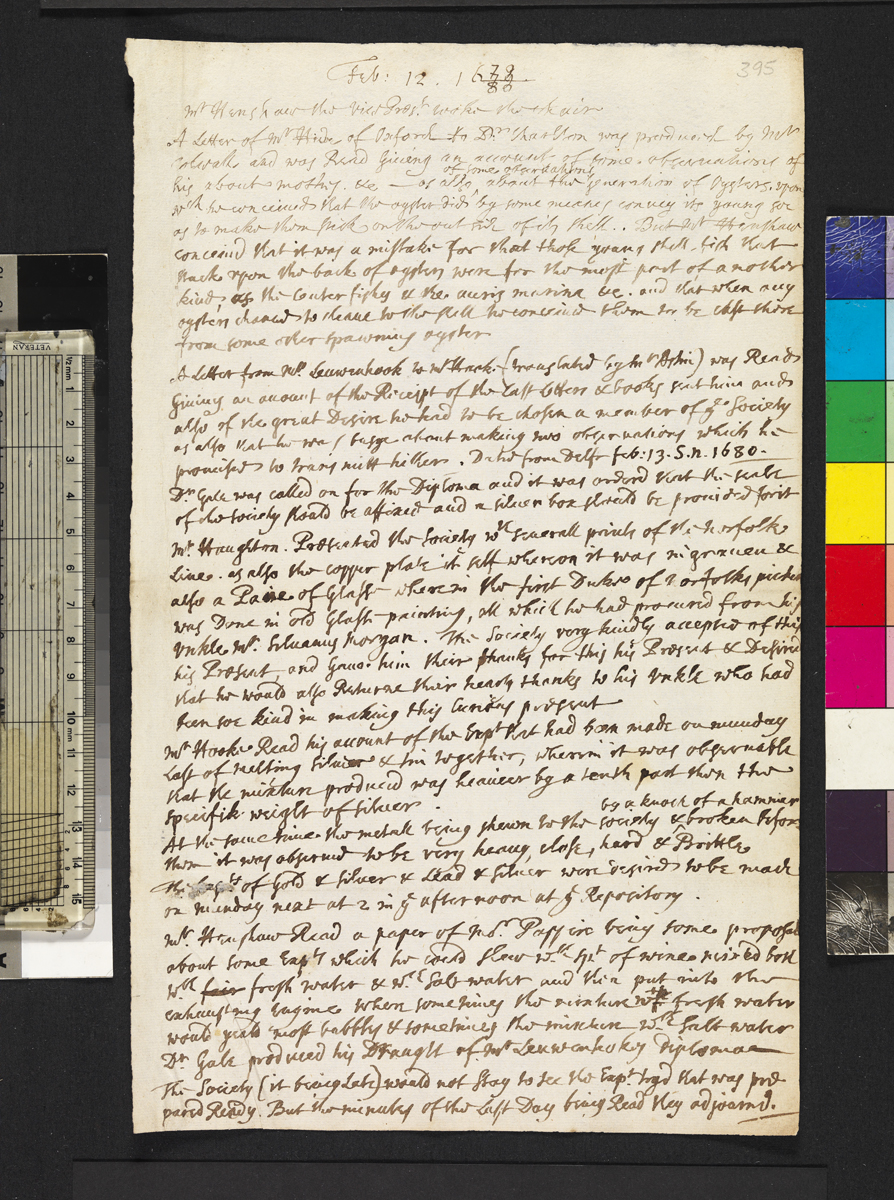 395
Feb: 12. 1679/80.
Mr Henshaw the vice Presit tooke the chair
A Letter of Mr Hide of Oxford to Dr Charlton was produced by Mr
Colwall and was Read Giving an account of some observations of
his about mothes. &c — as also of some observations about the generation of Oysters. upon
wch he conceived that the oyster did by some meanes convey its young soe
as to make them stick on the out side of its shell.. But Mr Henshaw
conceivd that it was a mistake for that those young shell fish that
stuck upon the back of oysters were for the most part of another
kind, as the Center fishes & the auris marina &c. and that when any
oysters chanced to cleave to the shell he conceived them to be cast there
from some other spawning oyster
A Letter from Mr. Leuwenhook to Mr Hook (translated by Mr Aston) was Read
Giving an account of the Receipt of the Last letters & books sent him and
also of the great Desire he had to be chosen a member of ye Society
as also that he was busye about making new observations which he
promised to transmitt hither. Dated from Delft Feb: 13. S.n. 1680.
Dr Gale was called on for the Diploma and it was ordered that the seale
of the society should be affixed and a silver box should be provided for it
Mr. Haughton. Presented the Society wth severall prints of the Norfolk
Line. as also the copper plate it self whereon it was ingraven &
also a Paine of Glasse wherein the first Duke of Norfolks picture
was Done in old Glasse painting, all which he had procured from his
Unkle Mr. Silvanus Morgan. The Society very kindly accepted of this
his Present and Gave him their thanks for this his Present & Desired
that he would also Returne their hearty thanks to his Unkle who had
been soe kind in making this Curious present
Mr Hooke Read his account of the Expt that had been made on munday
Last of melting Silver & tin together, wherein it was observable
that the mixture produced was heavier by a tenth part then the
specifik weight of silver.
At the same time the metall being shewn to the society & by a knock of a hammer broken before
them it was observed to be very heavy, close, hard & Brittle
The Expts of Gold & Silver & Lead & silver were desired to be made
on munday next at 2 in ye afternoon at ye Repository.
Mr. Henshaw Read a paper of Mor. Pappire being some proposal
about some Expts which he would shew wth spt of wine mixed both
wth fair fresh water & wth Salt water and then put into the
exhausting Engine where sometimes the mixture wth fresh water
would yeald most bubbles & sometimes the mixture wth Salt water
Dr Gale produced his Draught of Mr Leuwenhokes Diploma
The Society (it being Late) would not Stay to see the Expt tryd that was pre
pared Ready. But the minutes of the Last Day being Read they adjournd.
VETERAN
½ mm 1
2
3
4
5
6
7
8
9
10 mm
11
12
13
14
15